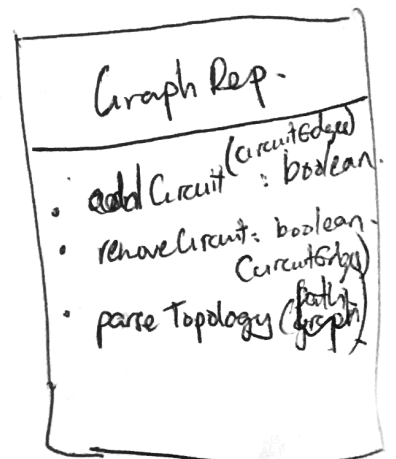 Graph Rep.
(CircuitEdge)
• addCircuit : boolean.
• removeCircuit: boolean.
CircuitEdge)
• parse Topology (path,
graph)